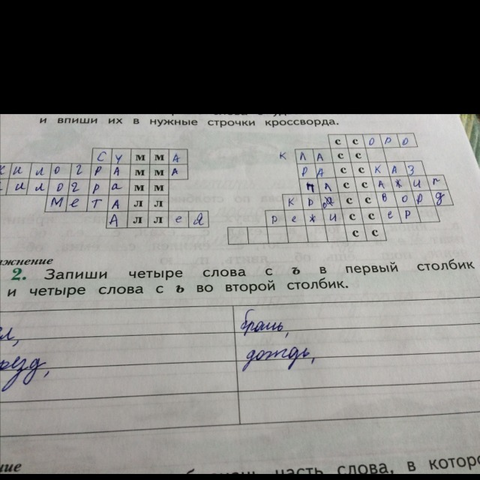 и впиши их в нужные строчки кроссворда.
сумма
илограмма
илограмм
металл
аллея
ссоро
класс
рассказ
пассажир
кроссворд
режиссер
сс
жнение
2. Запиши четыре слова с ъ в первый столбик
и четыре слова с ь во второй столбик.
л,
езд,
дождь,
ние
часть слова, в которо